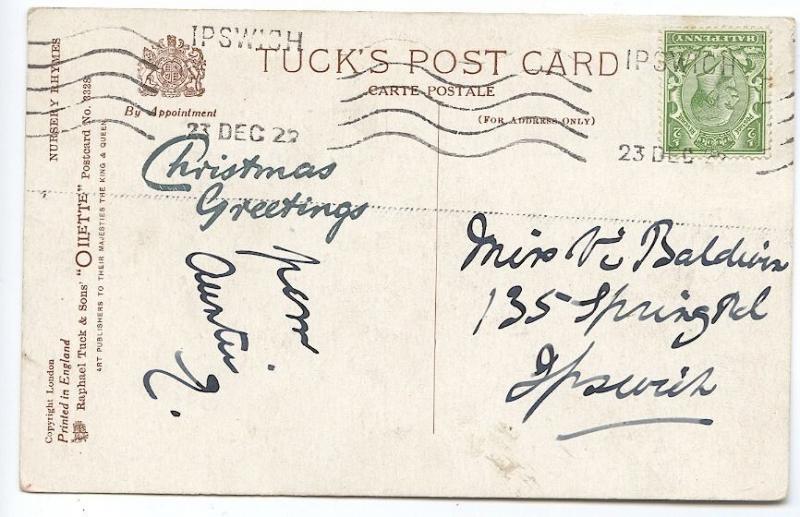 TUCK'S POST CARD
CARTE POSTALE
(FOR ADDRESS ONLY)
By Appointment
IPSWICH
23 DEC 22
IPSWICH
23 DEC
HALFPENNY
NURSERY RHYMES
Raphael Tuck & Sons' "OILETTE" Postcard No. 3328
ART PUBLISHERS TO THEIR MAJESTIES THE KING & QUEEN
Copyright London
Printed in England
Christmas
Greetings
from
Auntie
Miss Vi Baldwin
135 Spring Rd
Ipswich